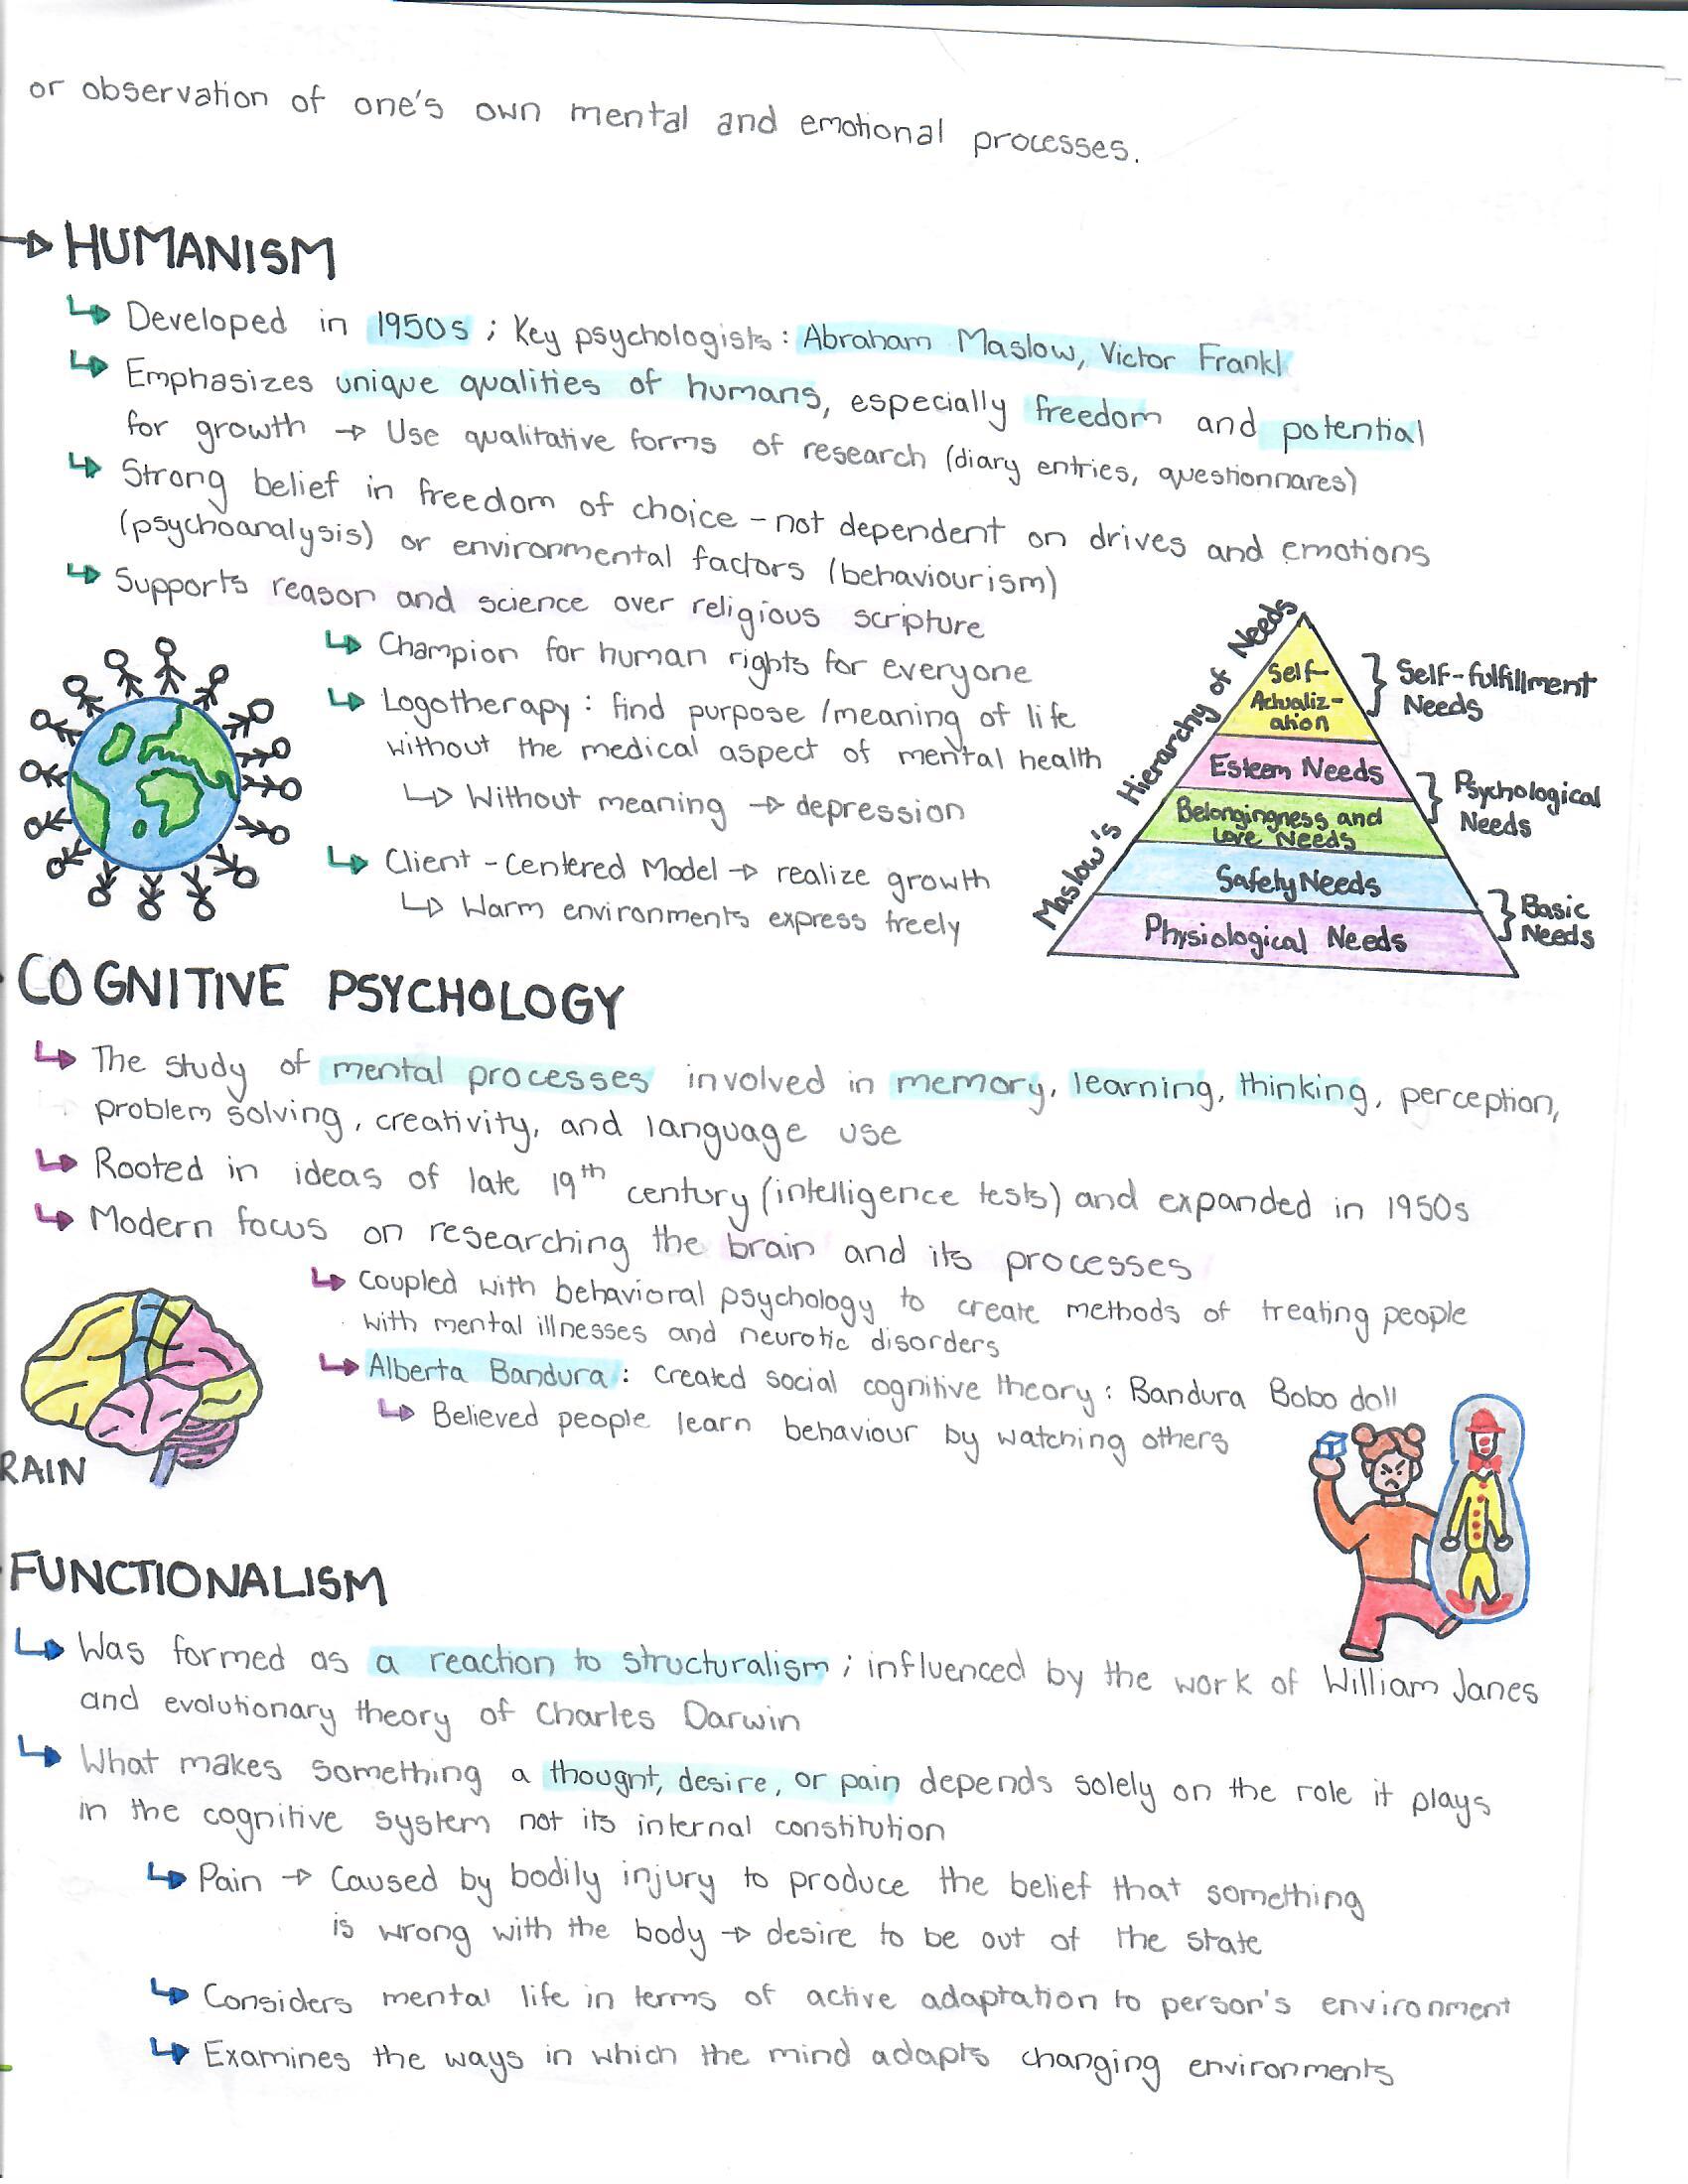 or observation of one's own mental and emotional processes.
HUMANISM
Developed in 1950s ; Key psychologists : Abraham Maslow, Victor Frankl
Emphasizes unique qualities of humans, especially freedom and potential
for growth → Use qualitative forms of research (diary entries, questionnares)
Strong belief in freedom of choice - not dependent on drives and emotions
(psychoanalysis) or environmental factors (behaviourism)
Supports reason and science over religious scripture
Champion for human rights for everyone
Logotherapy : find purpose /meaning of life
without the medical aspect of mental health
Without meaning → depression
Client - Centered Model → realize growth
Warm environments express freely
Maslow's Hierarchy of Needs
Self-
Actualiz-
ation
Self-fulfillment
Needs
Esteem Needs
Belongingness and
Love Needs
Psychological
Needs
Safety Needs
Physiological Needs
Basic
Needs
COGNITIVE PSYCHOLOGY
The study of mental processes involved in memory, learning, thinking, perception,
problem solving, creativity, and language use
Rooted in ideas of late 19th century (intelligence tests) and expanded in 1950s
Modern focus on researching the brain and its processes
Coupled with behavioral psychology to create methods of treating people
with mental illnesses and neurotic disorders
Alberta Bandura : Created social cognitive theory : Bandura Bobo doll
Believed people learn behaviour by watching others
RAIN
FUNCTIONALISM
Was formed as a reaction to structuralism ; influenced by the work of William Janes
and evolutionary theory of Charles Darwin
What makes something a thought, desire, or pain depends solely on the role it plays
in the cognitive system not its internal constitution
Pain → Caused by bodily injury to produce the belief that something
is wrong with the body → desire to be out of the state
Considers mental life in terms of active adaptation to person's environment
Examines the ways in which the mind adapts changing environments